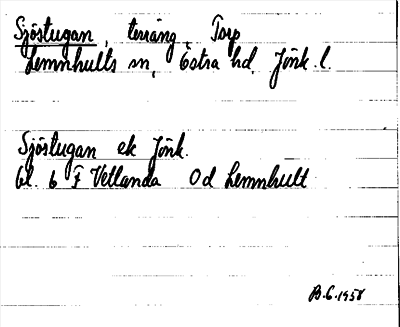 Sjöstugan, terräng, Torp
Lemnhults sn, Östra hd, Jönk. l.
Sjöstugan ek Jönk.
bl. 6 F Vetlanda Od Lemnhult
B.G. 1958